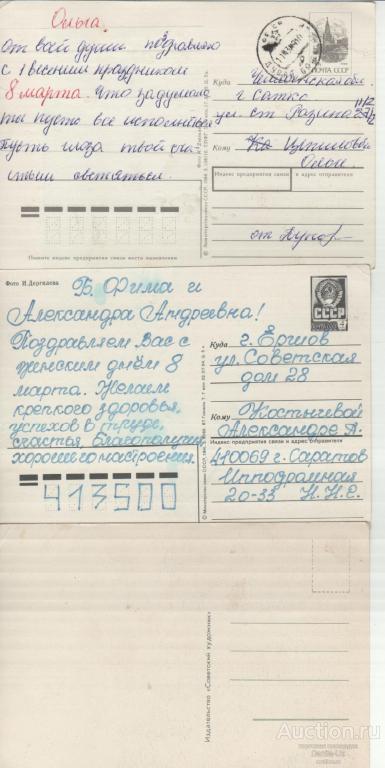 Ольга.
От всей души поздравляю
с 1 весенним праздником
8 марта. Что задумала
ты пусть все исполнится
Пусть глаза твои сча-
стьем светяться.
ПОЧТА СССР
Куда Челябинская обл
г Сатка
ул. ст Разина
Кому
Индекс предприятия связи и адрес отправителя
от
Пишите индекс предприятия связи места назначения
Фото И. Дергилева
Б. Фима и
Александра Андреевна!
Поздравляем Вас с
женским днём 8
марта. Желаем
крепкого здоровья,
успехов в труде,
счастья, благополучия,
хорошего настроения.
413500
СССР
Куда г. Ершов
ул. Советская
дом 28
Кому Костычевой
Александре А.
Индекс предприятия связи и адрес отправителя
410069 г. Саратов
Ипподромная
20-33 Н.Н.Е.
Издательство «Советский художник»
Auction.ru